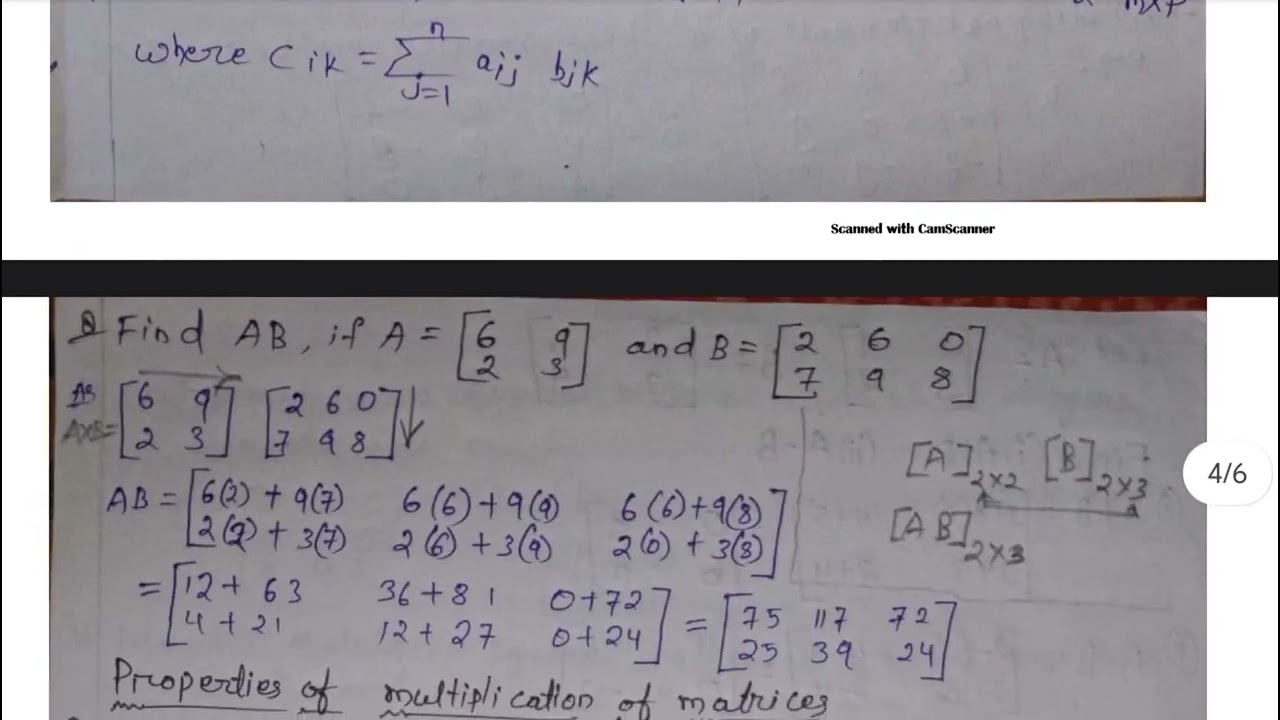 where Cik = n∑j=1 aij bjk
Scanned with CamScanner
Q Find AB, if A = [6 9; 2 3] and B = [2 6 0; 7 9 8]
AXB = [6 9; 2 3] [2 6 0; 7 9 8]
[A]2×2 [B]2×3
4/6
AB = [6(2) + 9(7) 6(6) + 9(9) 6(6) + 9(8)
2(2) + 3(7) 2(6) + 3(9) 2(0) + 3(8)]
[AB]2×3
= [12 + 63 36 + 81 0 + 72
4 + 21 12 + 27 0 + 24] = [75 117 72; 25 39 24]
Properties of multiplication of matrices